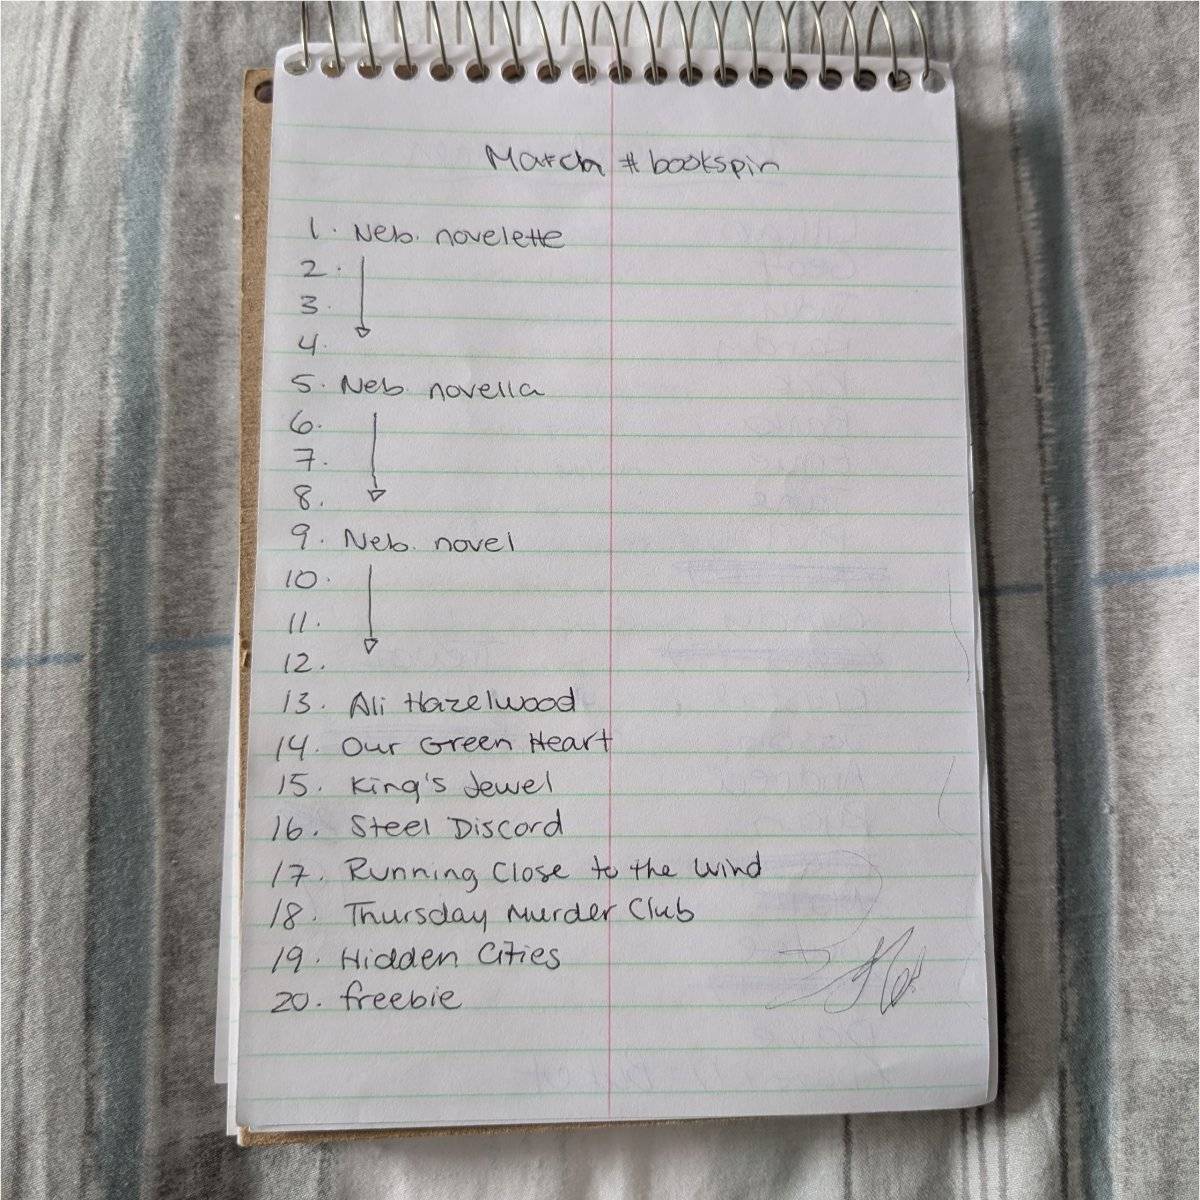 March #bookspin
1. Neb. novelette
2.
3.
4.
5. Neb. novella
6.
7.
8.
9. Neb. novel
10.
11.
12.
13. Ali Hazelwood
14. Our Green Heart
15. King's Jewel
16. Steel Discord
17. Running Close to the Wind
18. Thursday Murder Club
19. Hidden Cities
20. freebie